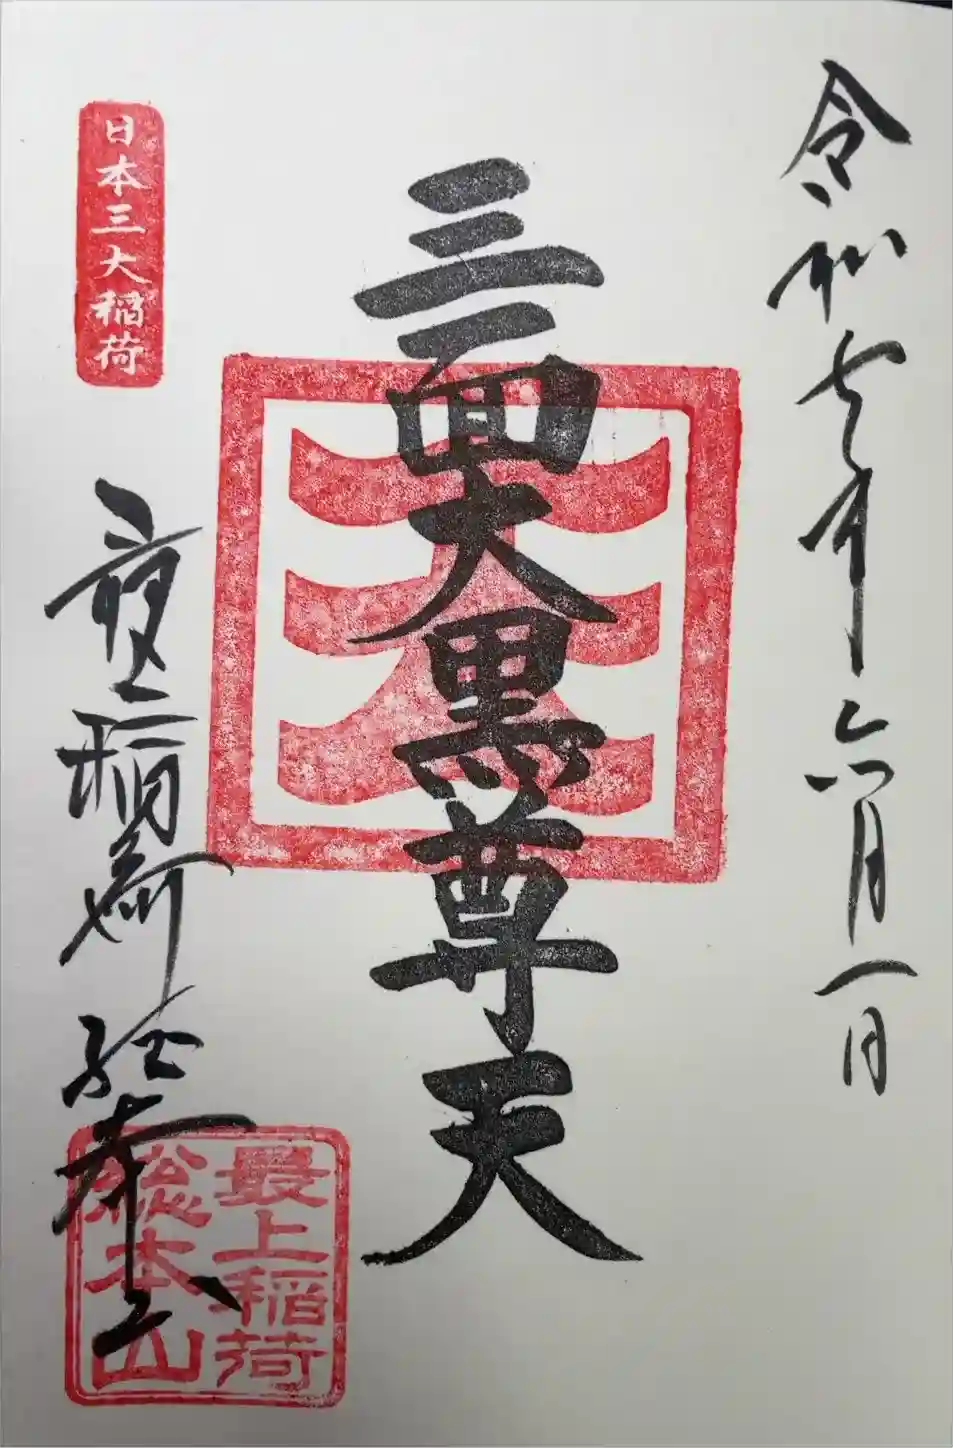 令和七年六月一日
三面大黒尊天
日本三大稲荷
最上稲荷総本山
最上稲荷
総本山